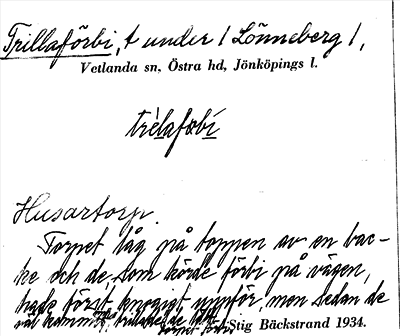 Trillaförbi, t under 1 Lönneberg 1,
Vetlanda sn, Östra hd, Jönköpings l.
Husartorp.
Torpet låg på toppen av en bac-
ke och de, som körde förbi på vägen,
hade först knogigt uppför, men sedan de
väl kommit
Stig Bäckstrand 1934.